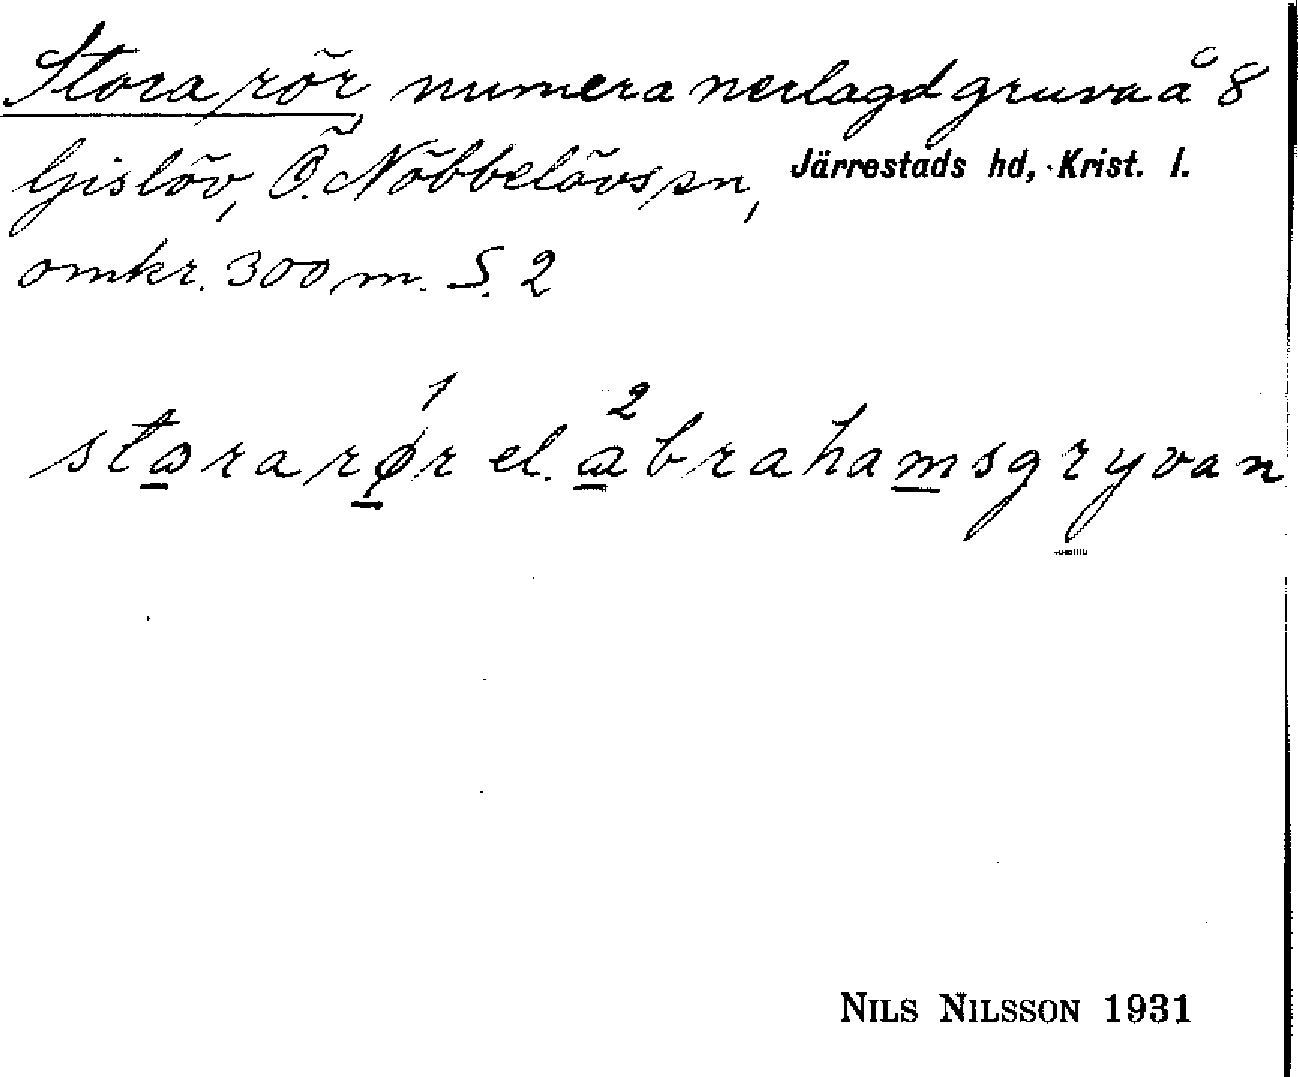 Stora rör, numera nerlagd gruva å 8
Gislöv, Ö. Nöbbelövs sn, Järrestads hd, Krist. l.
omkr. 300 m. S. 2
1 2
stara rør el. abrahamsgryvan
NILS NILSSON 1931